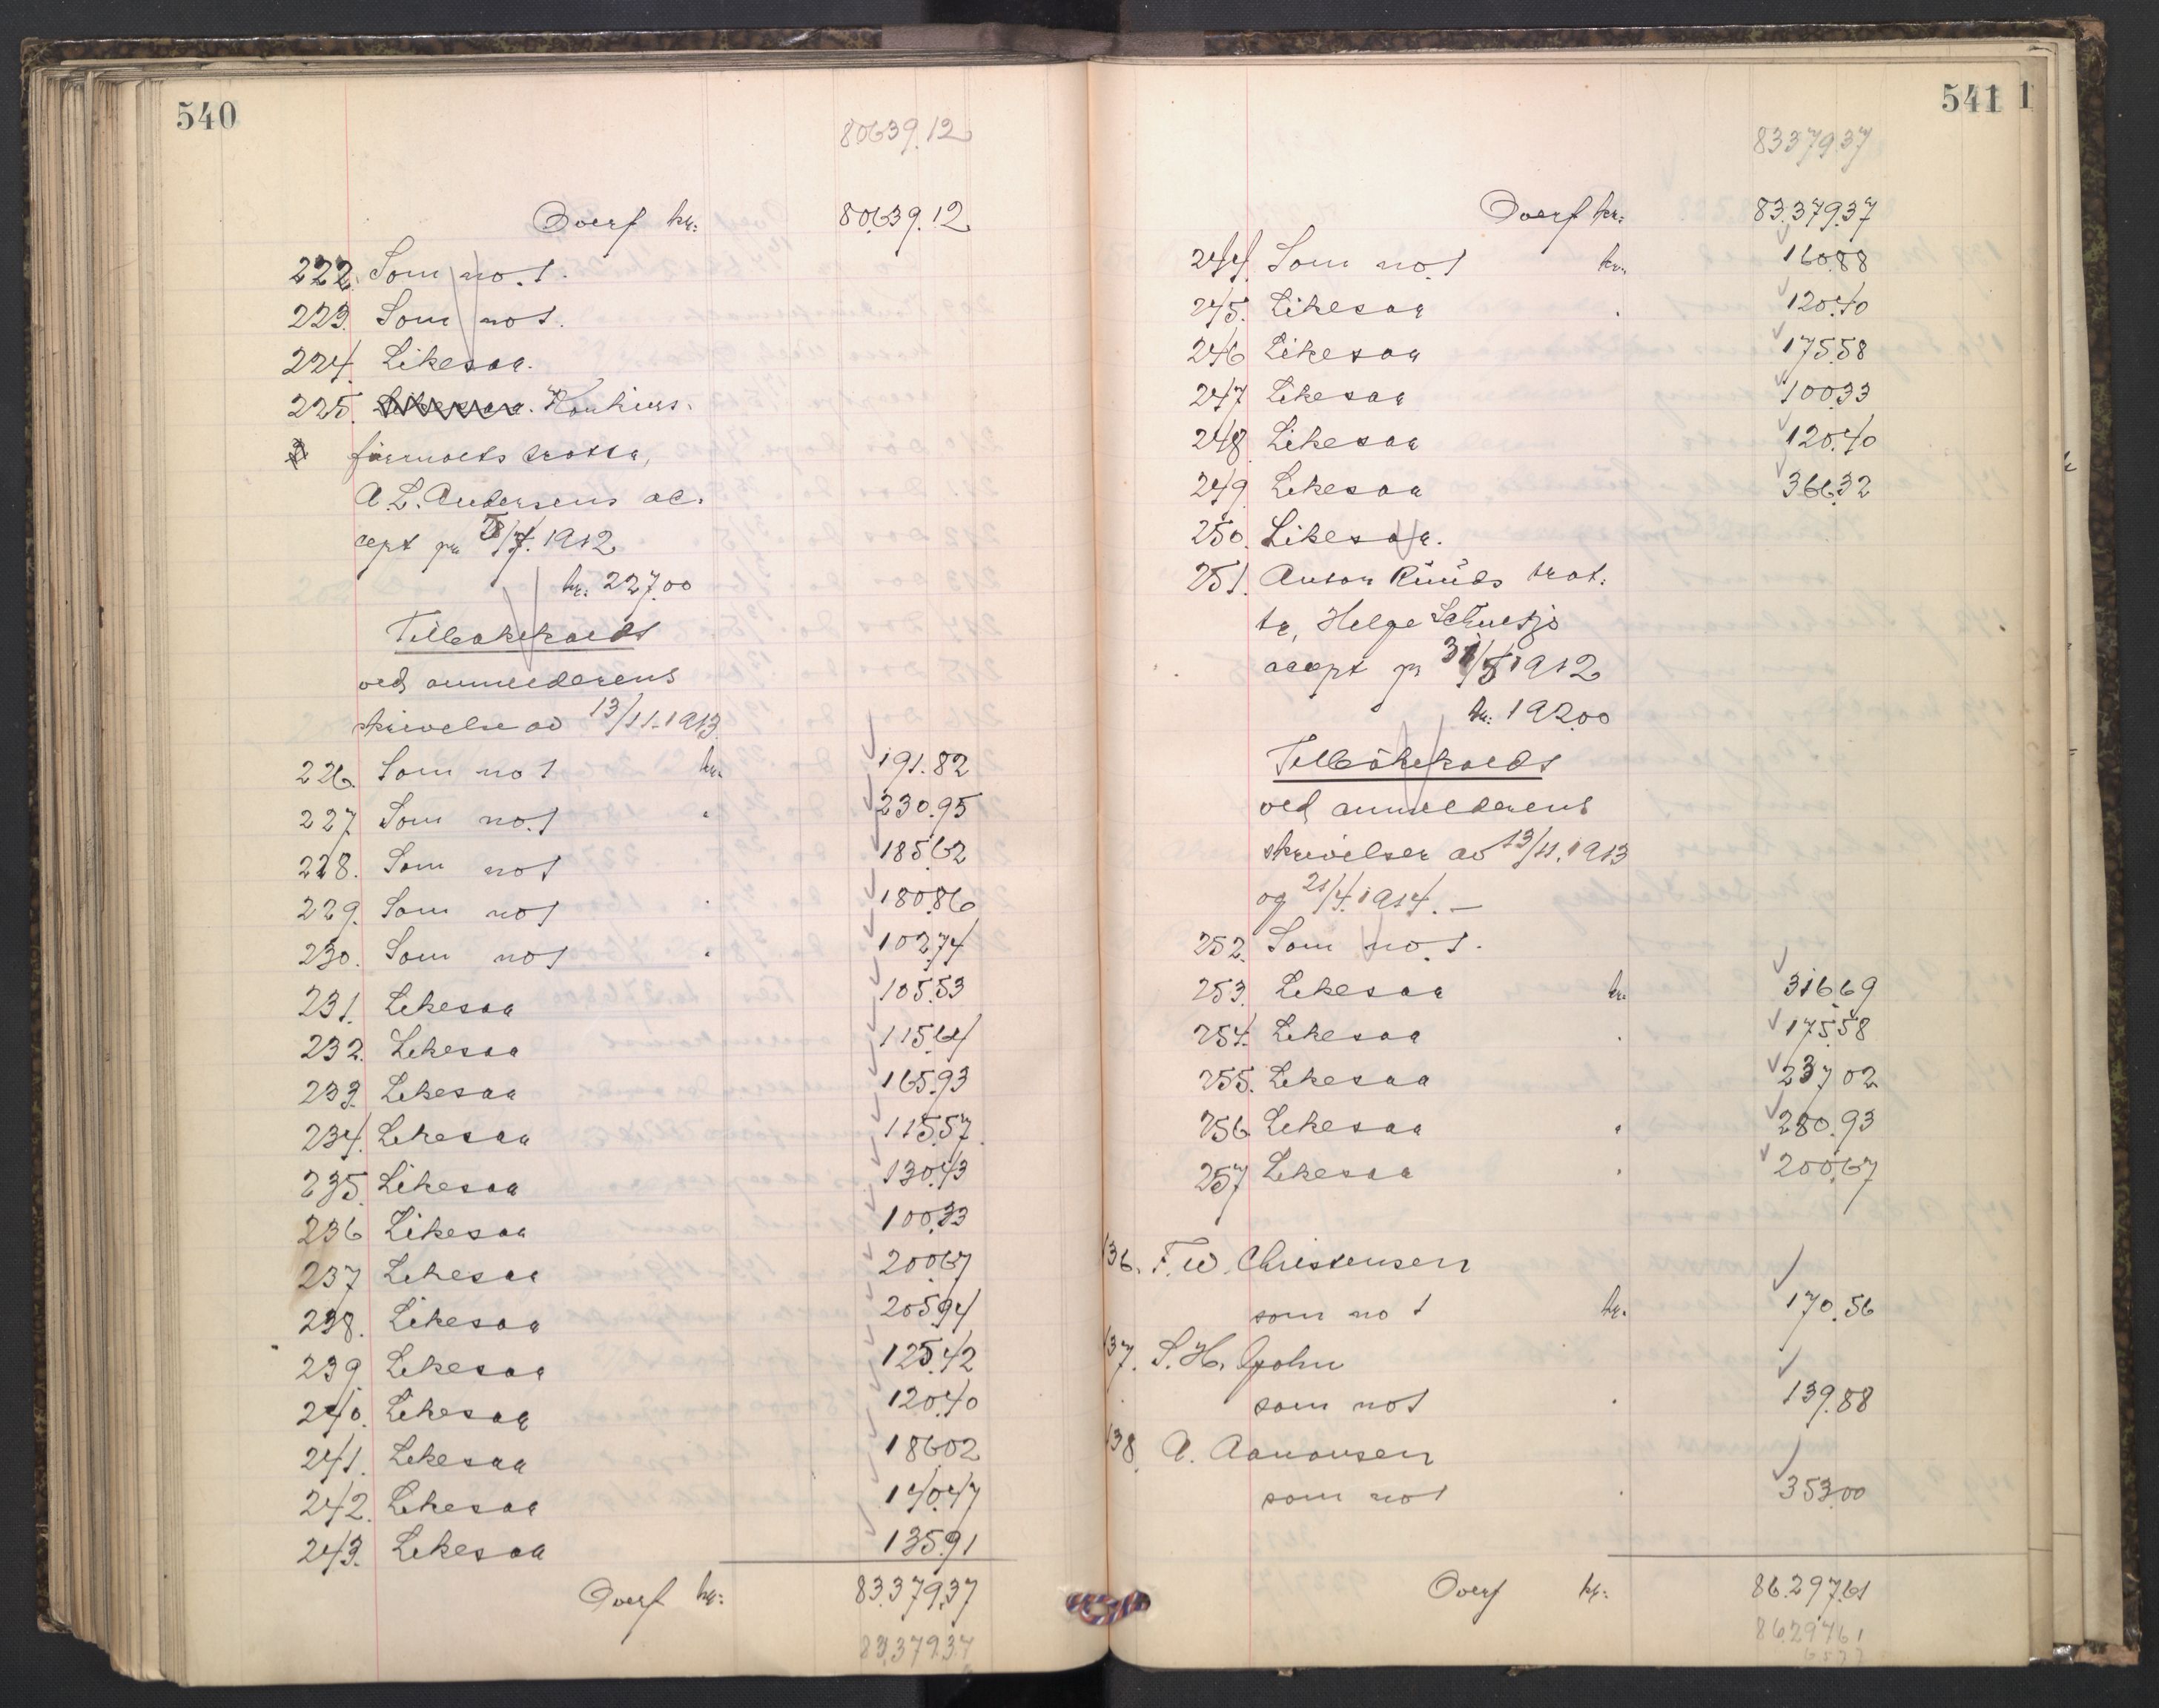 540
80639.12
Overf kr: 80639.12
222. Som no. 1.
223. Som no 1.
224. Likesaa.
225. Likesaa. Konkurs-
firmaets tratta,
A. L. Andersens ac-
cept pr 1912
kr. 227.00
Tilbakekaldt
ved anmelderens
skrivelse av 13/11-1913
226. Som no 1 kr. 191.82
227 Som no. 1 " 230.95
228. Som no 1 185.62
229. Som no 1 " 180.86
230. Som no 1 " 102.74
231. Likesaa 105.53
232. Likesaa 115.64
233. Likesaa 165.93
234. Likesaa 115.57
235. Likesaa 130.43
236 Likesaa 100.33
237 Likesaa 200.67
238. Likesaa 205.94
239. Likesaa 125.42
240. Likesaa 120.40
241. Likesaa 186.02
242. Likesaa 140.47
243. Likesaa 135.91
Overf kr: 83.379.37
83.379.37
541 1
83379.37
Overf kr: 83.379.37
244. Som no. 1 kr. 160.88
245. Likesaa " 120.40
246 Likesaa 175.58
247 Likesaa 100.33
248. Likesaa 120.40
249. Likesaa 366.32
250. Likesaa.
251. Anton Ruuds trat-
ta, Helge
accept pr 31/5 1912
kr: 192.00
Tilbakekaldt
ved anmelderens
skrivelser av 13/11.1913
og 21/4.1914. —
252. Som no. 1.
253. Likesaa kr. 316.69
254. Likesaa " 175.58
255. Likesaa 237 02
256. Likesaa " 280.93
257 Likesaa " 200.67
136. F. W. Christensen
som no 1 kr. 170.56
137. S. H. Gjohn
som no 1 " 139.88
138. A. Aanonsen
som no 1 " 353.00
Overf kr: 86.297.61
86.297.61